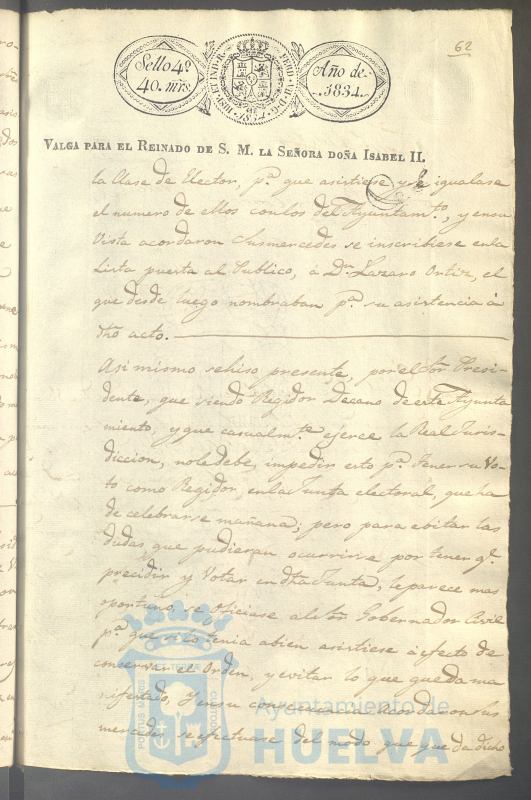 62
Sello 4º
40. mrs.
Año de
1834.
VALGA PARA EL REINADO DE S. M. LA SEÑORA DOÑA ISABEL II.
la Clase de Elector, pª. que asistiese y se igualase
el numero de ellos con los del Ayuntamto., y en su
Vista acordaron Susmercedes se inscribiese en la
Lista puesta al Publico, á Dn. Lazaro Ortiz, el
que desde luego nombraban pª. su asistencia á
dho acto.
Asi mismo se hiso presente, por el Sor Presi-
dente, que siendo Regidor Decano de este Ayunta
miento, y que casualmte. ejerce la Real Juris-
diccion, no le debe, impedir esto pª. tener su Vo-
to como Regidor, en la Junta electoral, que ha
de celebrarse mañana; pero para ebitar las
dudas que pudieran ocurrirse por tener qe.
precidir y Votar en dha Junta, le parece mas
oportuno, se oficiase al Sor Gobernador Civil
pª. que si lo tenia a bien asistiese á efecto de
conservar el Orden, y evitar lo que queda ma
nifestado, Y en su consecuencia Acordaron sus
mercedes se efectuase del modo que queda dicho
Ayuntamiento de
HUELVA